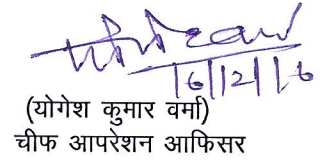 16/12/16
(योगेश कुमार वर्मा)
चीफ आपरेशन आफिसर